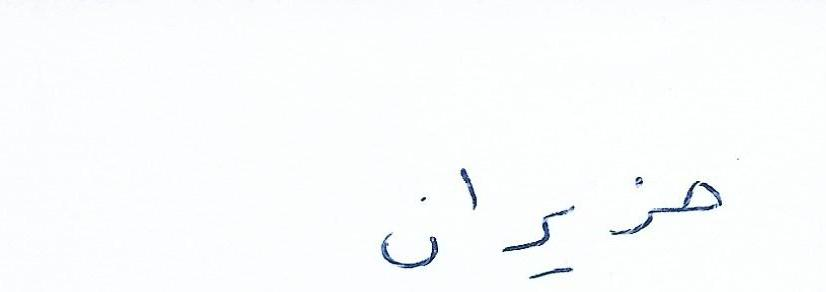 حزيران